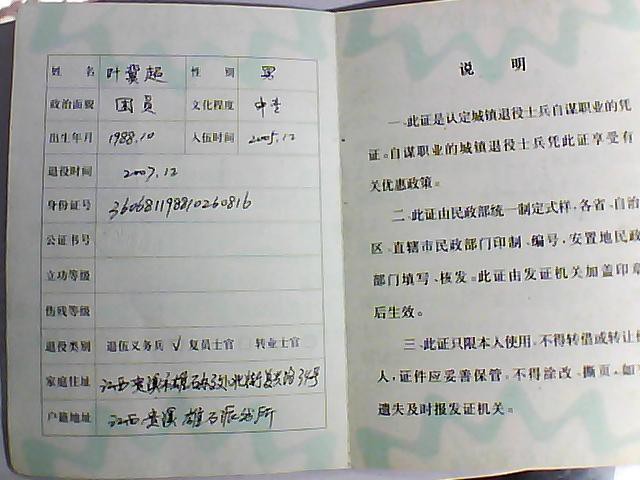 姓名 叶冀超 性别 男
政治面貌 团员 文化程度 中专
出生年月 1988.10 入伍时间 2005.12
退役时间 2007.12
身份证号 360681198810260816
公证书号
立功等级
伤残等级
退役类别 退伍义务兵 √ 复员士官 转业士官
家庭住址 江西贵溪市雄石 北街 号
户籍地址 江西贵溪雄石派出所
说明
一、此证是认定城镇退役士兵自谋职业的凭
证。自谋职业的城镇退役士兵凭此证享受有
关优惠政策。
二、此证由民政部统一制定式样，各省、自治
区、直辖市民政部门印制、编号，安置地民政
部门填写、核发。此证由发证机关加盖印章
后生效。
三、此证只限本人使用，不得转借或转让他
人，证件应妥善保管。不得涂改、撕页，如
遗失及时报发证机关。